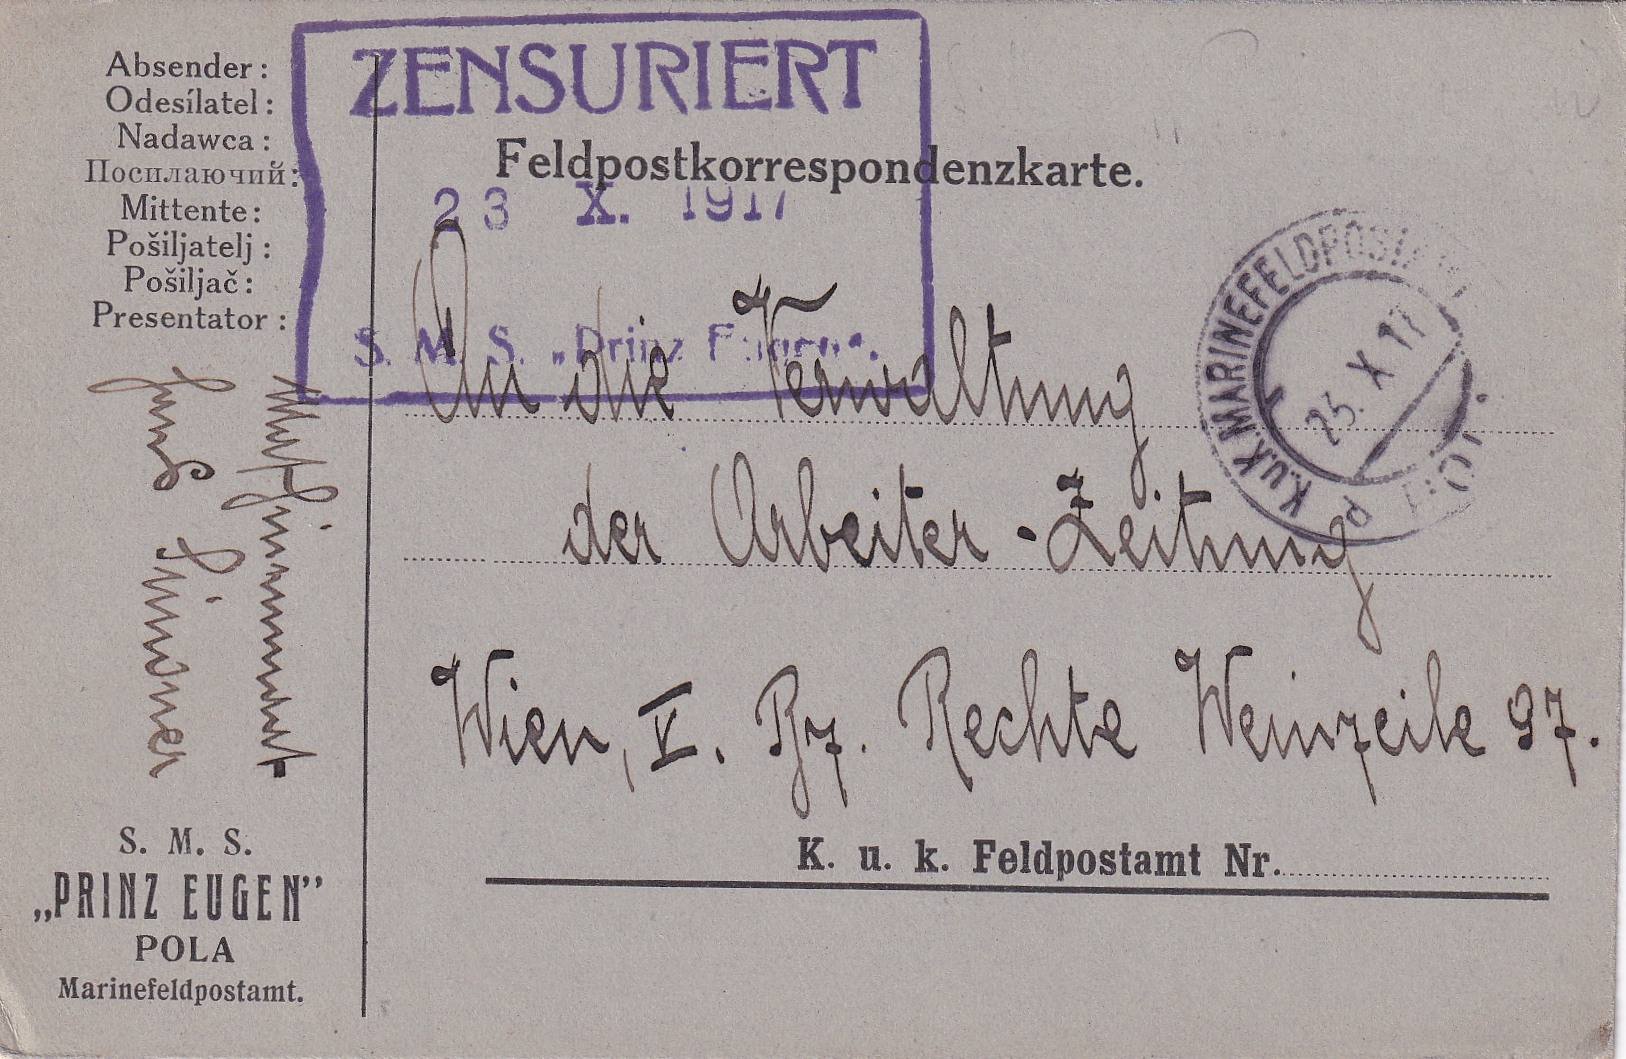 ZENSURIERT
Absender:
Odesílatel:
Nadawca:
Посилаючий:
Mittente:
Pošiljatelj:
Pošiljač:
Presentator:
Feldpostkorrespondenzkarte.
23 X. 1917
S. M. S. „Prinz Eugen“.
K.U.K. MARINEFELDPOSTAMT
POLA
23. X 17
An die Verwaltung
der Arbeiter-Zeitung
Wien, V. Bz. Rechte Weinzeile 97.
K. u. k. Feldpostamt Nr.
S. M. S.
„PRINZ EUGEN”
POLA
Marinefeldpostamt.